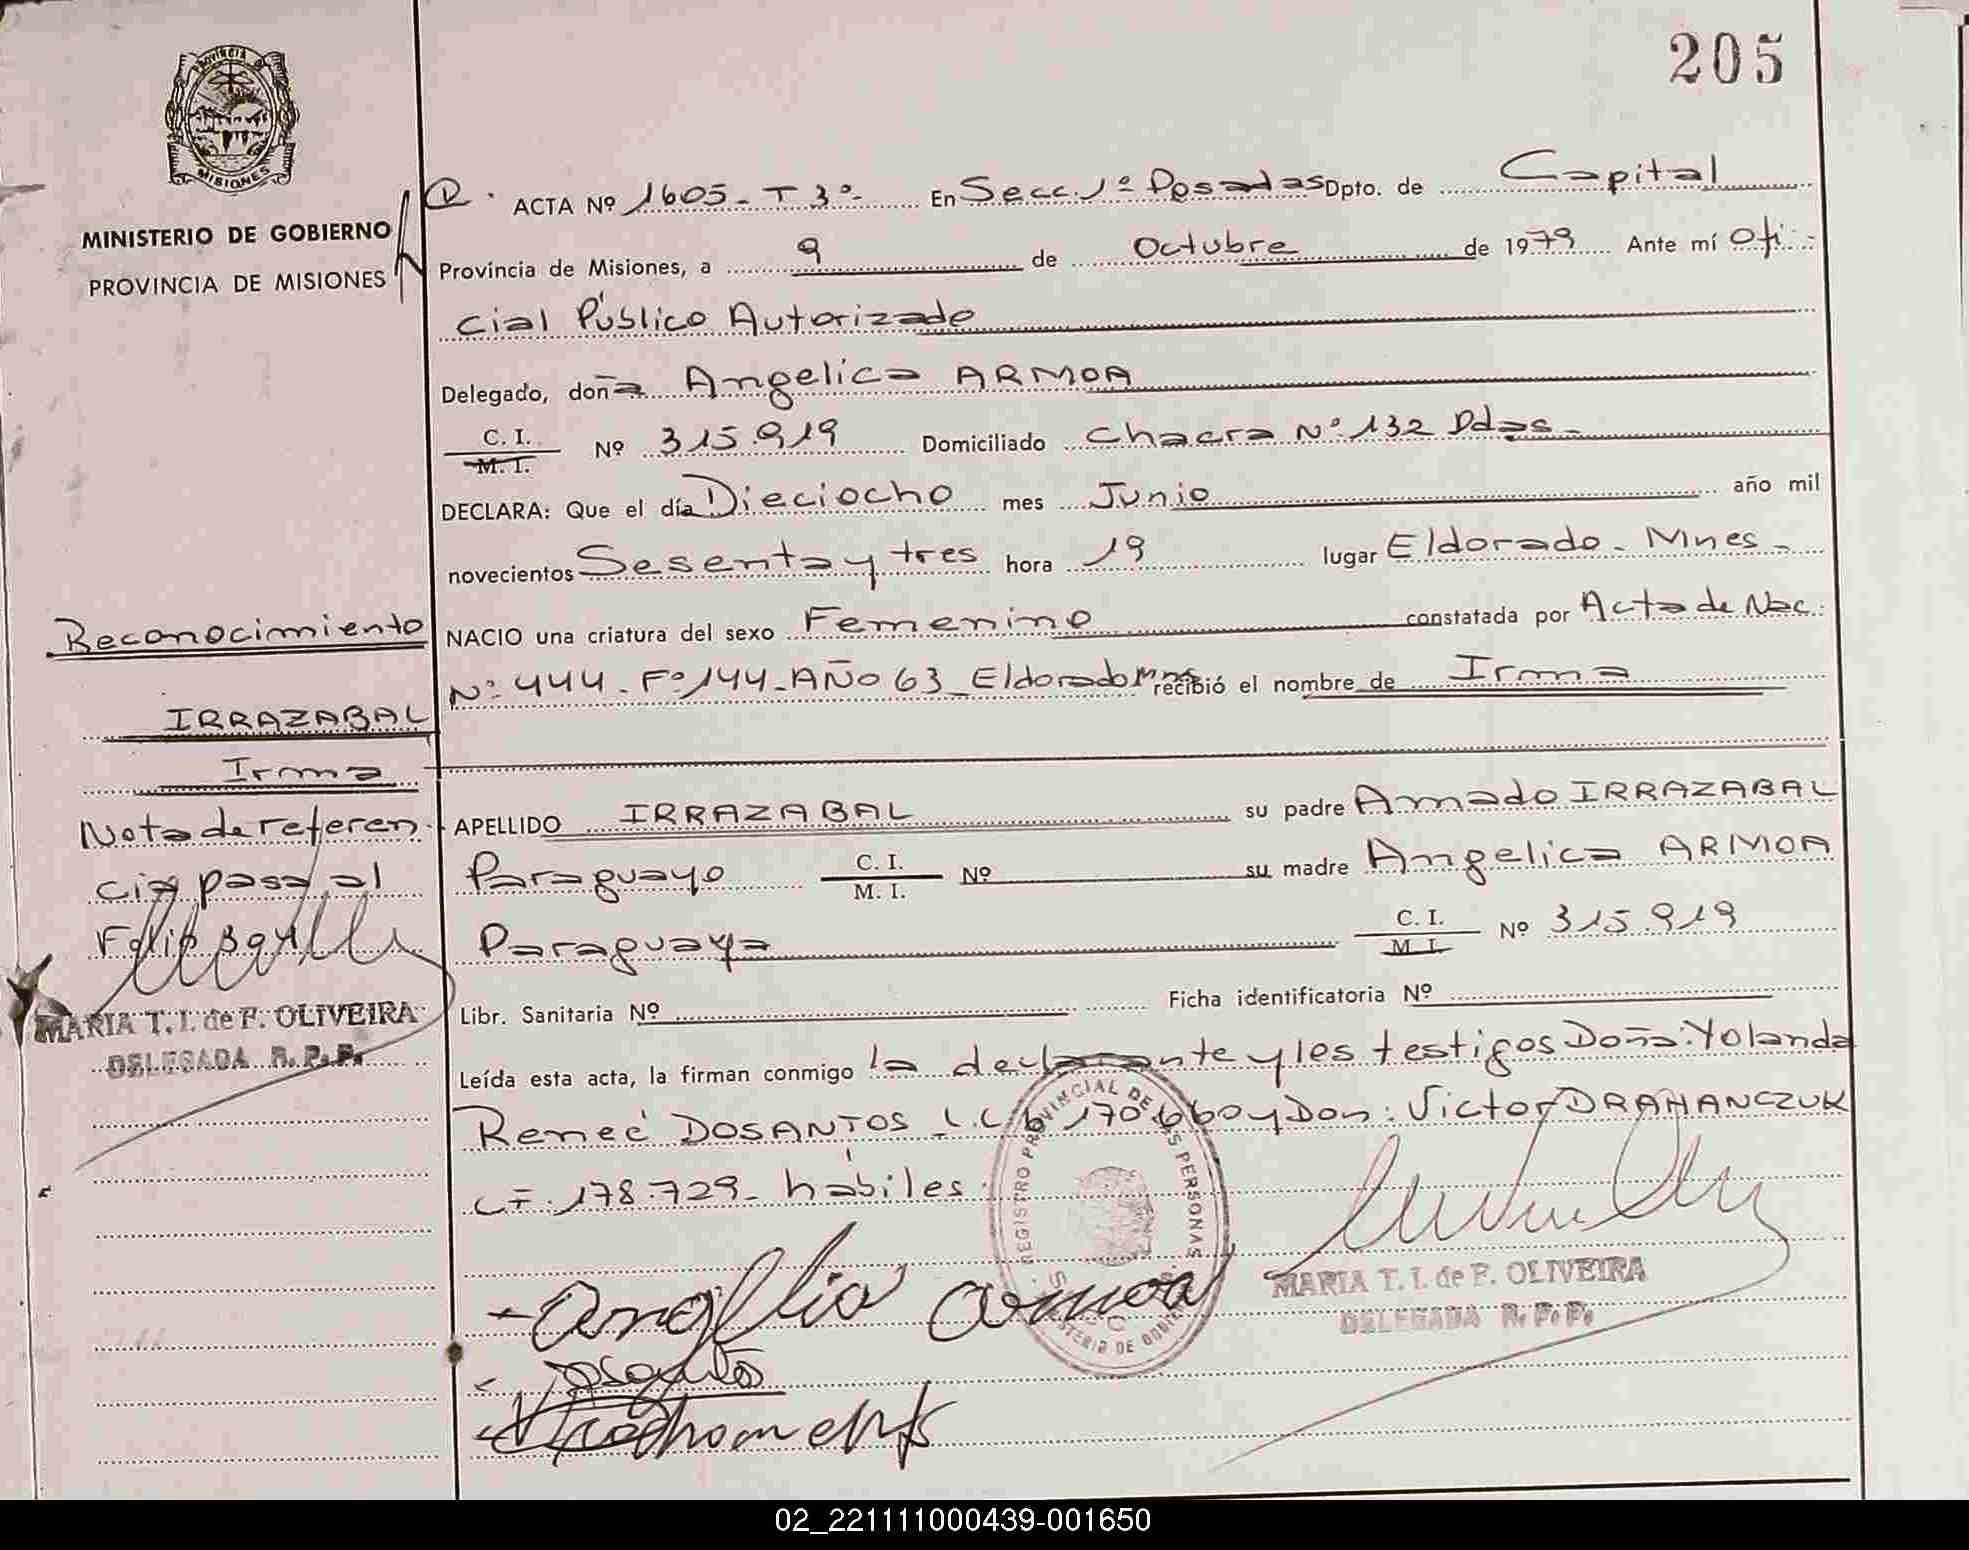 205
PROVINCIA DE
MISIONES
MINISTERIO DE GOBIERNO
PROVINCIA DE MISIONES
ACTA Nº 1605 - T 3º - En Secc. 1ª Posadas Dpto. de Capital
Provincia de Misiones, a 9 de Octubre de 1979 Ante mí Ofi
cial Público Autorizado
Delegado, doña Angelica ARMOA
C. I. / M. I. Nº 315.919 Domiciliado Chacra Nº 132 Pdas -
DECLARA: Que el día Dieciocho mes Junio año mil
novecientos Sesenta y tres hora 19 lugar Eldorado - Mnes -
NACIO una criatura del sexo Femenino constatada por Acta de Nac.
Nº 444 - Fº 144 - AÑO 63 - Eldorado Mnes recibió el nombre de Irma
APELLIDO IRRAZABAL su padre Amado IRRAZABAL
Paraguayo C. I. / M. I. Nº su madre Angelica ARMOA
Paraguaya C. I. / M. I. Nº 315.919
Libr. Sanitaria Nº Ficha identificatoria Nº
Leída esta acta, la firman conmigo la declarante y los testigos Doña: Yolanda
Reneé DOSANTOS L.C. 6.170.660 y Don: Victor DRAHANCZUK
C.I. 178.729 - hábiles
Reconocimiento
IRRAZABAL
Irma
Nota de referen
cia pasa al
MARIA T. I. de F. OLIVEIRA
DELEGADA R. P. P.
REGISTRO PROVINCIAL DE LAS PERSONAS
MINISTERIO DE GOBIERNO
Angelica Armoa
MARIA T. I. de F. OLIVEIRA
DELEGADA R. P. P.
Dosantos
02_221111000439-001650